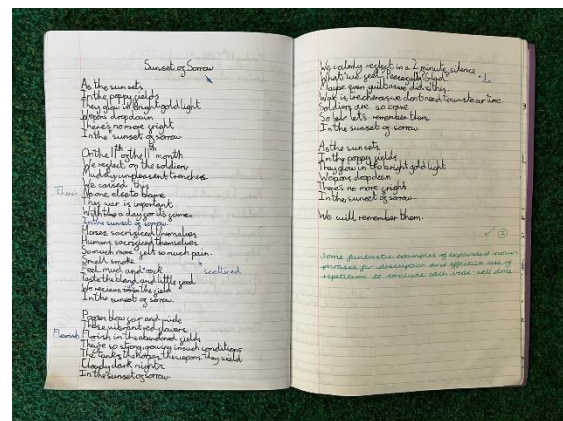 Sunset of Sorrow
As the sun sets
In the poppy fields
They glow in bright gold light
Wepons drop down
There's no more fright
In the sunset of sorrow
On the 11th of the 11th month
We reflect on the soldiers
Muddy unpleasant trenches
We caused this
No one else to blame
This war is important
With the a day for its
In the sunset of sorrow.
Horses sacrificed themselves
Humans sacrificed themselves
So much more felt so much pain.
Smell smoke
scattered
Feel mud and rock
Taste the bland and little food
We recieve in the field
In the sunset of sorrow.
Poppies blow far and wide
These vibrant red flowers
Flourish
Florish in the abandoned fields
There so strong growing in such conditions
The tanks the horses the wepons they wield
Cloudy dark nights
In the sunset of sorrow
We calmly reflect in a 2 minute silence
What we feel Peacefull, Glad
Maybe even guilt as we did this.
War is treacherous don't need to waste
Soldiers are so brave
So let's remember them
In the sunset of sorrow.
As the sun sets
In the poppy fields
They glow in the bright gold light
Wepons drop down
There's no more fright
In the sunset of sorrow
We will remember them.
Some fantastic examples of expanded noun
phrases for description and effective use of
repetition to conclude each verse well done.